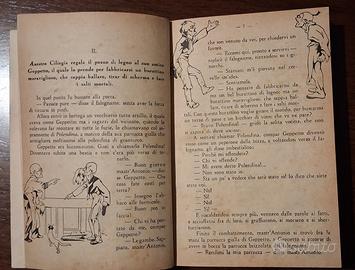 II.
Maestro Ciliegia regala il pezzo di legno al suo amico
Geppetto, il quale lo prende per fabbricarsi un burattino
maraviglioso, che sappia ballare, tirar di scherma e fare
i salti mortali.
In quel punto fu bussato alla porta.
— Passate pure — disse il falegname, senza aver la forza
di rizzarsi in piedi.
Allora entrò in bottega un vecchietto tutto arzillo, il quale
aveva nome Geppetto; ma i ragazzi del vicinato, quando lo
volevano far montare su tutte le furie, lo chiamavano col
soprannome di Polendina, a motivo della sua parrucca gialla che
somigliava moltissimo alla polendina di granturco.
Geppetto era bizzosissimo. Guai a chiamarlo Polendina!
Diventava subito una bestia e non c'era più verso di te-
nerlo.
— Buon giorno
mastr'Antonio — dis-
se Geppetto. — Che
cosa fate costì per
terra?
— Insegno l'ab-
baco alle formicole.
— Buon pro vi
faccia!
— Chi vi ha por-
tato da me, compar
Geppetto?
— Le gambe. Sap-
piate, mastr'Antonio,
— 7 —
che son venuto da voi, per chiedervi un
favore.
— Eccomi qui, pronto a servirvi —
replicò il falegname, rizzandosi su i gi-
nocchi.
— Stamani m'è piovuta nel cervello
un'idea.
— Sentiamola.
— Ho pensato di fabbricarmi da
me un bel burattino di legno; ma un
burattino maraviglioso, che sappia bal-
lare, tirare di scherma e fare i salti mor-
tali. Con questo burattino voglio girare il mondo, per buscarmi
un tozzo di pane e un bicchier di vino: che ve ne pare?
— Bravo Polendina! — gridò la solita vocina, che non si
capiva di dove uscisse.
A sentirsi chiamar Polendina, compar Geppetto diventò
rosso come un peperone dalla bizza, e voltandosi verso il fa-
legname, gli disse imbestialito:
— Perché mi offendete?
— Chi vi offende?
— Mi avete detto Polendina!...
— Non sono stato io.
— Sta un po' a vedere che sarò stato io! Io dico che siete
stato voi.
— No!
— Sì!
— No!
— Sì!
E riscaldandosi sempre più, vennero dalle parole ai fatti,
e acciuffatisi fra di loro, si graffiarono, si morsero e si sbertuc-
ciarono.
Finito il combattimento, mastr'Antonio si trovò fra le
mani la parrucca gialla di Geppetto, e Geppetto si accorse di
avere in bocca la parrucca brizzolata del falegname.
— Rendimi la mia parrucca — gridò mastr'Antonio.